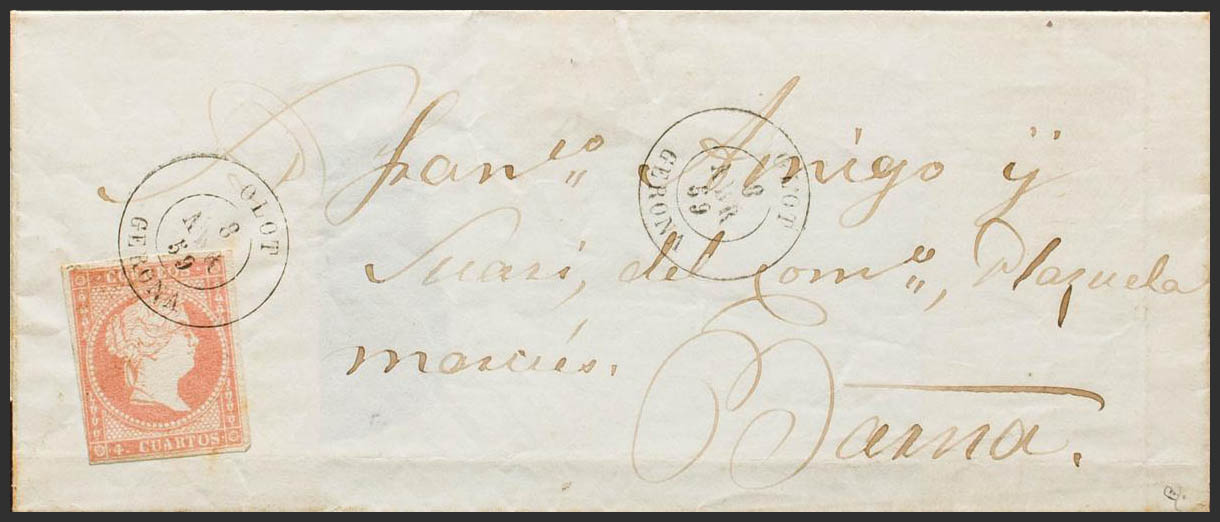 Franco. Amigo ÿ
Suari, del Comº, Plazuela
marcús.
Barna.
OLOT
8
ABR
59
GERONA
OLOT
8
ABR
59
GERONA
CORREOS
4. CUARTOS